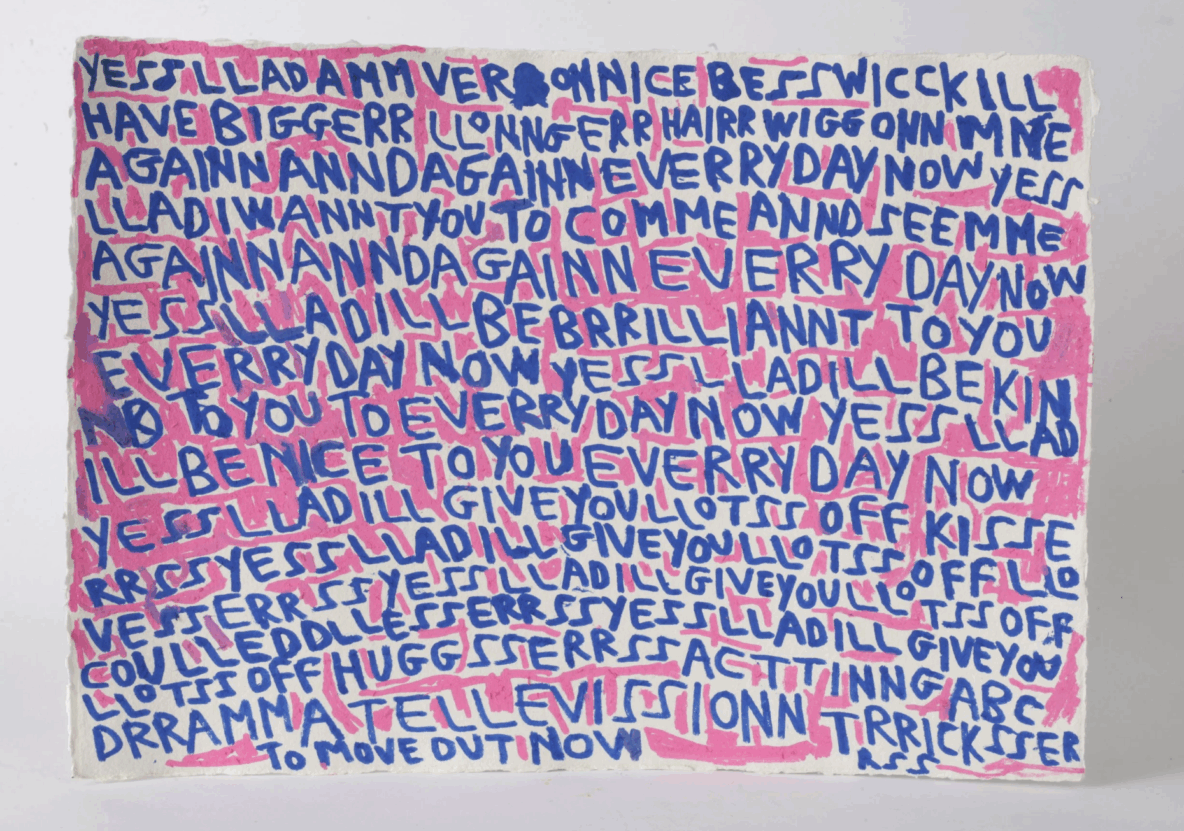 YESSLLADAMM VERROHNNICE BESSWICCKILL
HAVE BIGGERR LLONNGERR HAIRR WIGG ONN MME
AGAINN ANNDAGAINNEVERRYDAY NOW YESS
LLADIWANNTYOU TO COMMEANND SEEMME
AGAINNANNDAGAINNEVERRY DAYNOW
YESSLLADILLBEBRRILLIANNT TOYOU
EVERRYDAY NOW YESSLLADILLBEKIN
ND TOYOU TOEVERRYDAYNOW YESS LLAD
ILLBENICE TOYOU EVERRYDAY NOW
YESSLLADILL GIVEYOULLOTSS OFF KISSE
RRSSYESSLLADILLGIVEYOULLOTSSOFFLLO
VESSERRSSYESSLLADILLGIVEYOULLOTSS OFF
COULLEDDLLESSERRSSYESSLLADILL GIVEYOU
LLOTSS OFFHUGGSSERRSSACTTINNGABC
DRRAMMATELLEVISSIONN TRRICKSSER
TO MOVE OUT NOW RSS